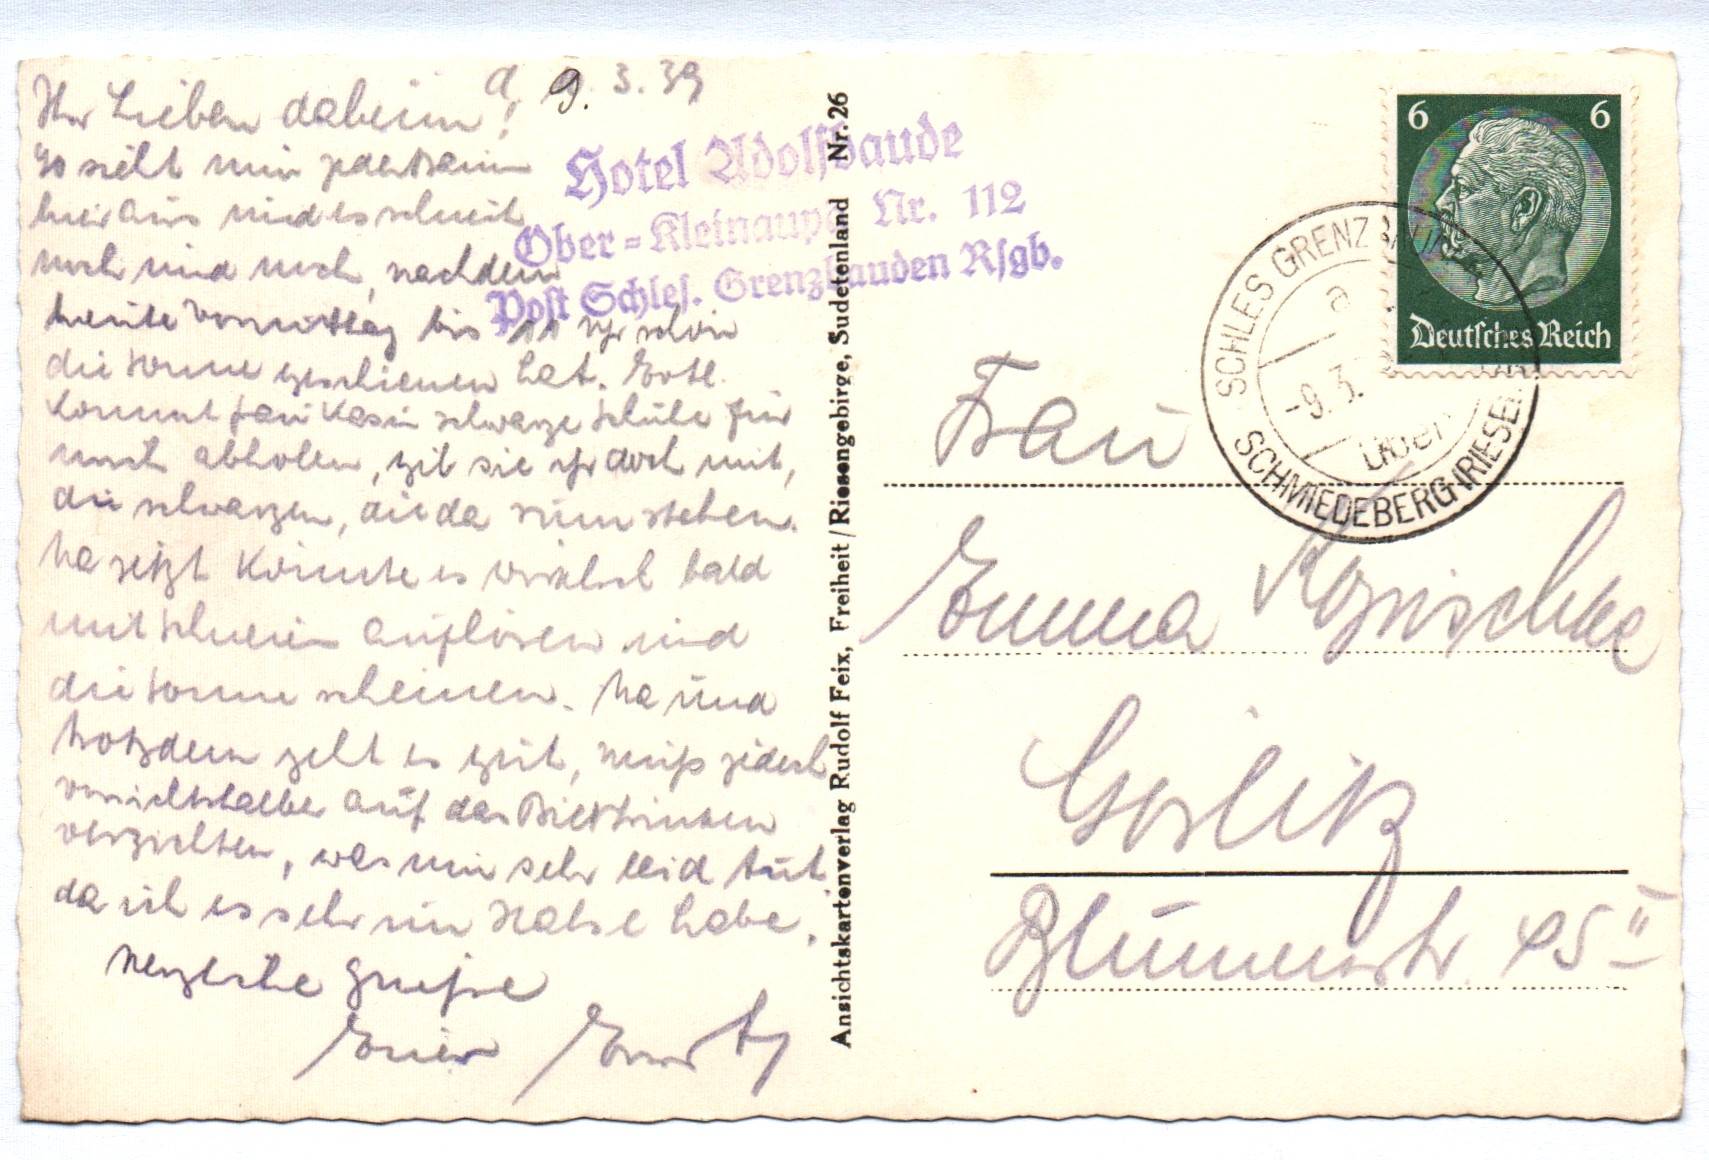 d. 9. 3. 39
Ihr Lieben daheim!
So sieht nun jeder Baum
hier aus und es schneit
noch und noch, nachdem
heute Vormittag bis 11 Uhr schön
die Sonne geschienen hat. Evtl.
kommt schwarze Schuhe für
mich abholen, gib sie ihr doch mit,
die schwarzen, die da rumstehen.
Na jetzt könnte es wirklich bald
mit schneien aufhören und
die Sonne scheinen. Na und
trotzdem geht es gut, muß jedoch
vorsichtshalber auf das Biertrinken
verzichten, was mir sehr leid tut,
da ich es sehr im Halse habe.
Herzliche Grüße
Euer Ernst
Hotel Adolfbaude
Ober-Kleinaupa Nr. 112
Post Schles. Grenzbauden Rsgb.
Ansichtskartenverlag Rudolf Feix, Freiheit / Riesengebirge, Sudetenland Nr. 26
6 6
Deutsches Reich
SCHLES GRENZBAUDEN
a
-9.3.
über
SCHMIEDEBERG (RIESENGEB
Frau
Emma
Görlitz
Blumenstr. 45 II